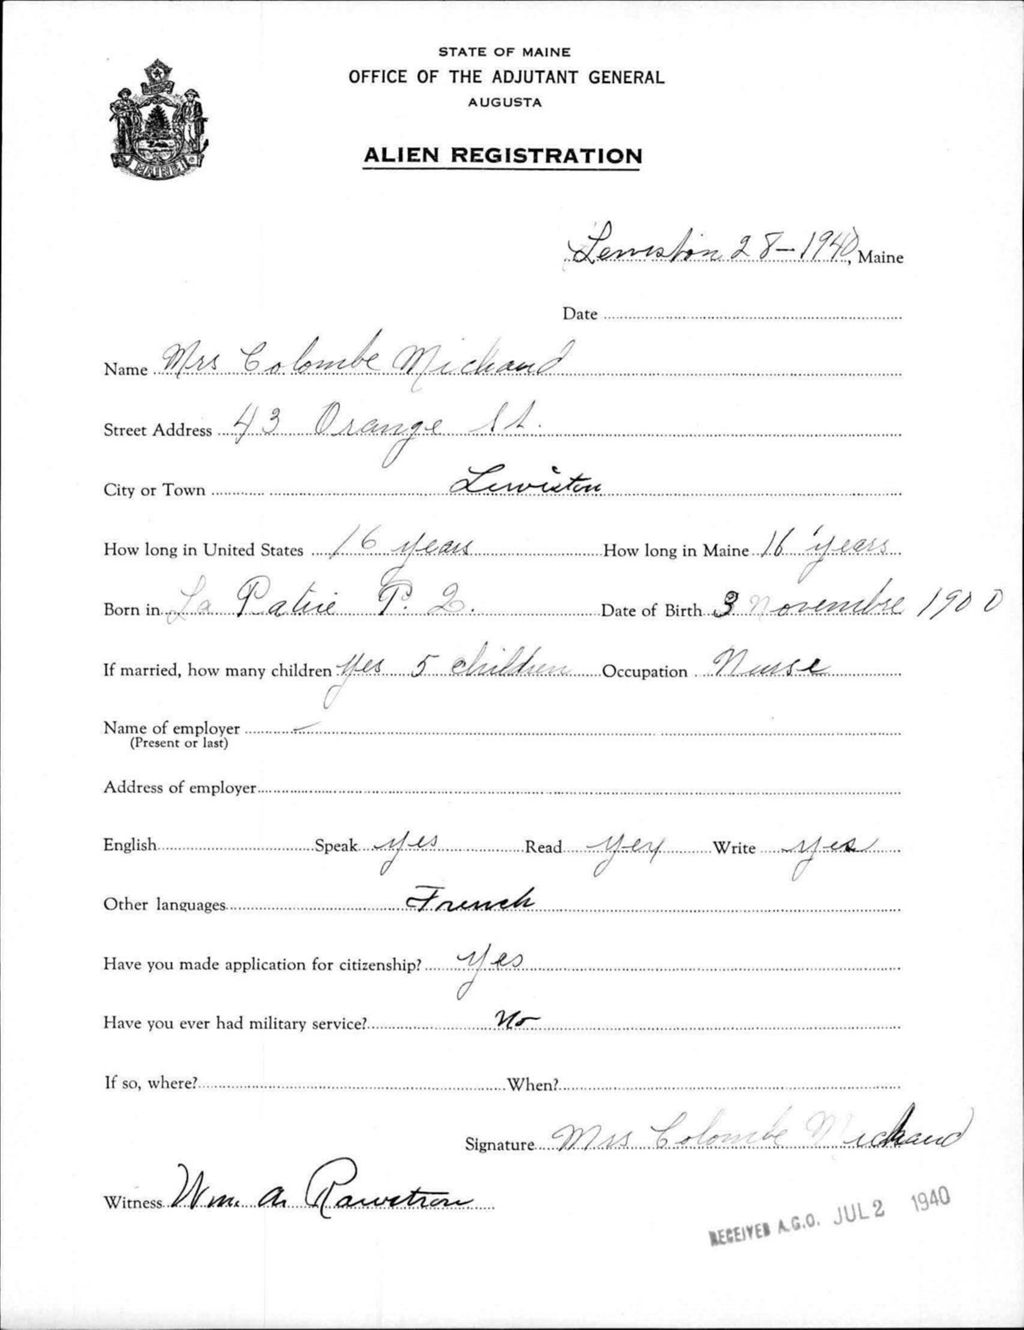 STATE OF MAINE
OFFICE OF THE ADJUTANT GENERAL
AUGUSTA
ALIEN REGISTRATION
MAINE
Lewiston 28-1940, Maine
Date
Name Mrs Colombe Michaud
Street Address 43 Orange St.
City or Town Lewiston
How long in United States 16 years How long in Maine 16 years
Born in La Patrie P. Q. Date of Birth 3 Novembre 1900
If married, how many children Yes 5 children Occupation Nurse
Name of employer
(Present or last)
Address of employer
English Speak yes Read yes Write yes
Other languages French
Have you made application for citizenship? Yes
Have you ever had military service? No
If so, where? When?
Signature Mrs Colombe Michaud
Witness Wm. A. Rawstron
RECEIVED A.G.O. JUL 2 1940